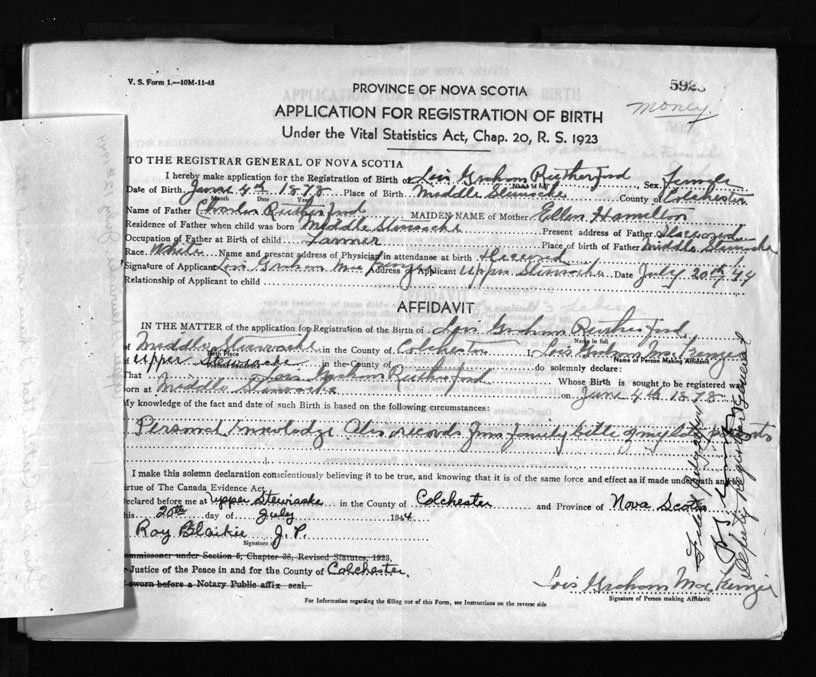 V. S. Form 1.—10M-11-43
PROVINCE OF NOVA SCOTIA
592
Money.
APPLICATION FOR REGISTRATION OF BIRTH
Under the Vital Statistics Act, Chap. 20, R. S. 1923
TO THE REGISTRAR GENERAL OF NOVA SCOTIA
I hereby make application for the Registration of Birth of Lois Graham Rutherford Sex Female
Name in full
Date of Birth June 4th 1878 Place of Birth Middle Stewiacke County of Colchester
Month Day Year
Name of Father Charles Rutherford MAIDEN NAME of Mother Ellen Hamilton
Residence of Father when child was born Middle Stewiacke Present address of Father Deceased
Occupation of Father at Birth of child Farmer Place of birth of Father Middle Stewiacke
Race White Name and present address of Physician in attendance at birth Deceased
Signature of Applicant Lois Graham MacKenzie Address of Applicant Upper Stewiacke Date July 20th/44
Relationship of Applicant to child
AFFIDAVIT
IN THE MATTER of the application for Registration of the Birth of Lois Graham Rutherford
Name in full
of Middle Stewiacke in the County of Colchester I Lois Graham MacKenzie
Birth Place Name of Person Making Affidavit
Upper Stewiacke in the County of do solemnly declare:
That Lois Graham Rutherford Whose Birth is sought to be registered was
born at Middle Stewiacke on June 4th 1878
My knowledge of the fact and date of such Birth is based on the following circumstances:
Personal Knowledge Also records from family bible of my parents
I make this solemn declaration conscientiously believing it to be true, and knowing that it is of the same force and effect as if made under oath and
irtue of The Canada Evidence Act.
eclared before me at Upper Stewiacke in the County of Colchester and Province of Nova Scotia
his 20th day of July 1944
Roy Blaikie J. P.
Signature of
mmissioner under Section 5, Chapter 38, Revised Statutes, 1923,
Justice of the Peace in and for the County of Colchester.
sworn before a Notary Public affix seal.
Lois Graham MacKenzie
Signature of Person making Affidavit
For Information regarding the filling out of this Form, see Instructions on the reverse side
Deputy Registrar General